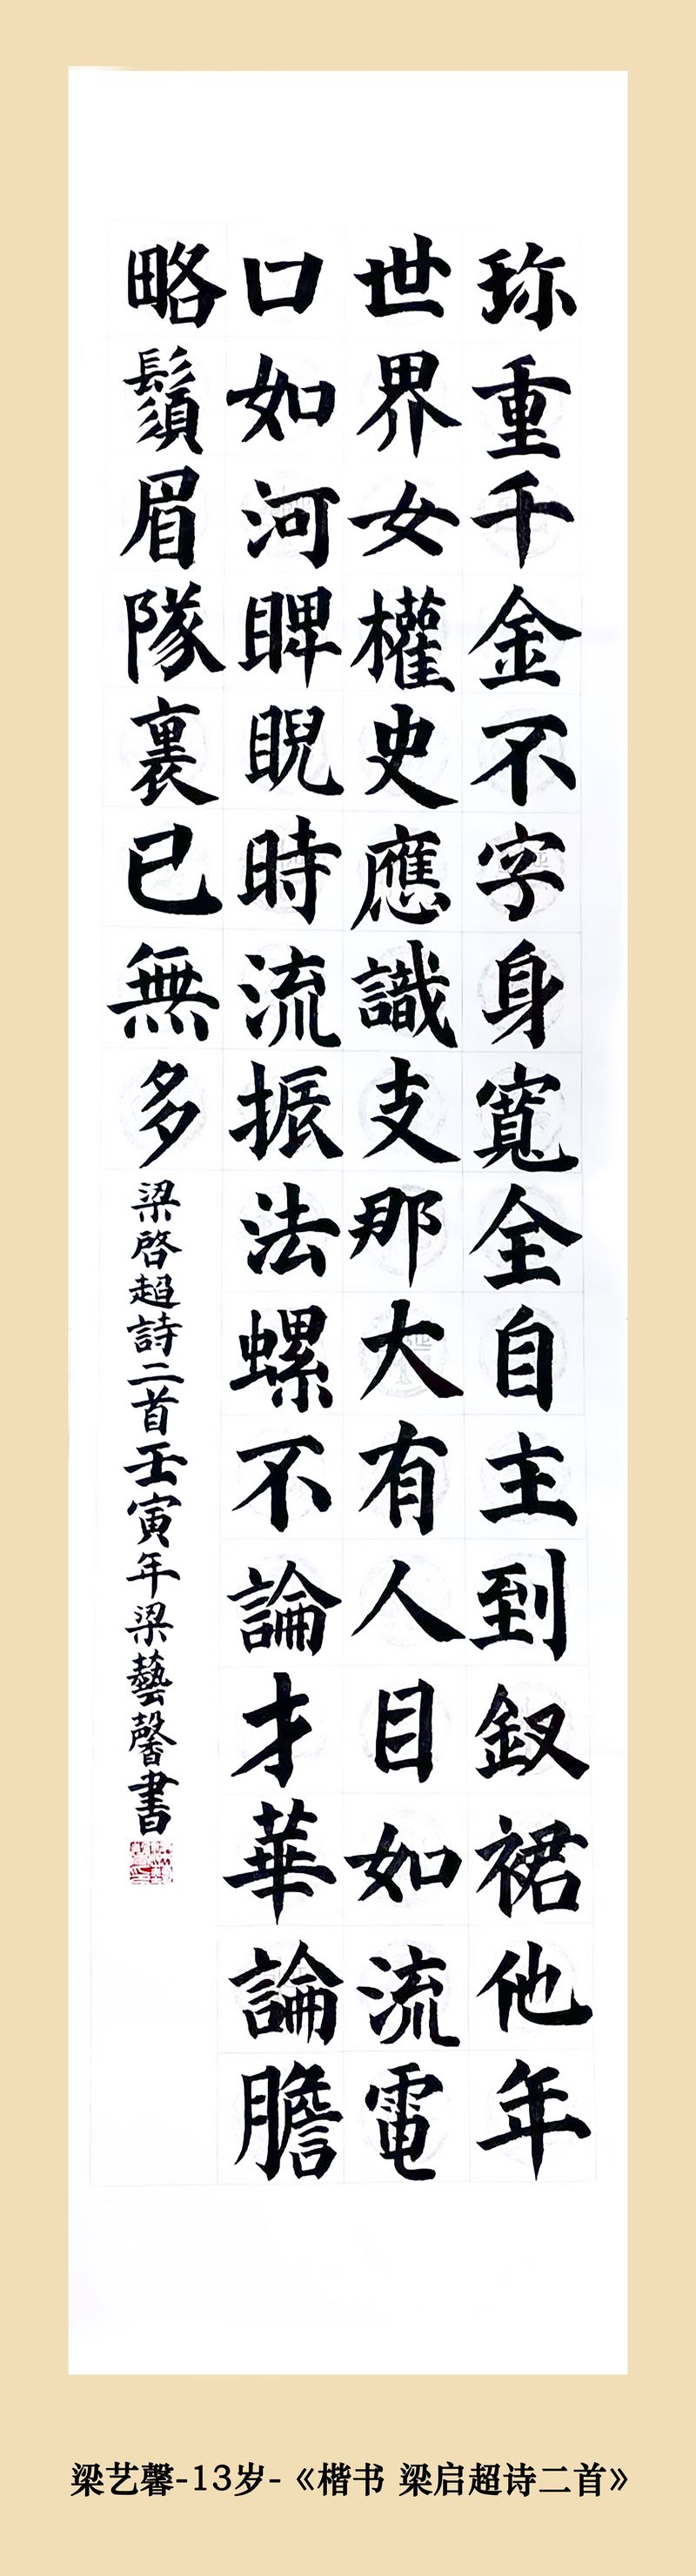 珎重千金不字身寬全自主到釵裙他年
世界女權史應識支那大有人目如流電
口如河睥睨時流振法螺不論才華論膽
略鬚眉隊裏已無多
梁啓超詩二首壬寅年梁藝馨書
梁艺馨-13岁-《楷书 梁启超诗二首》